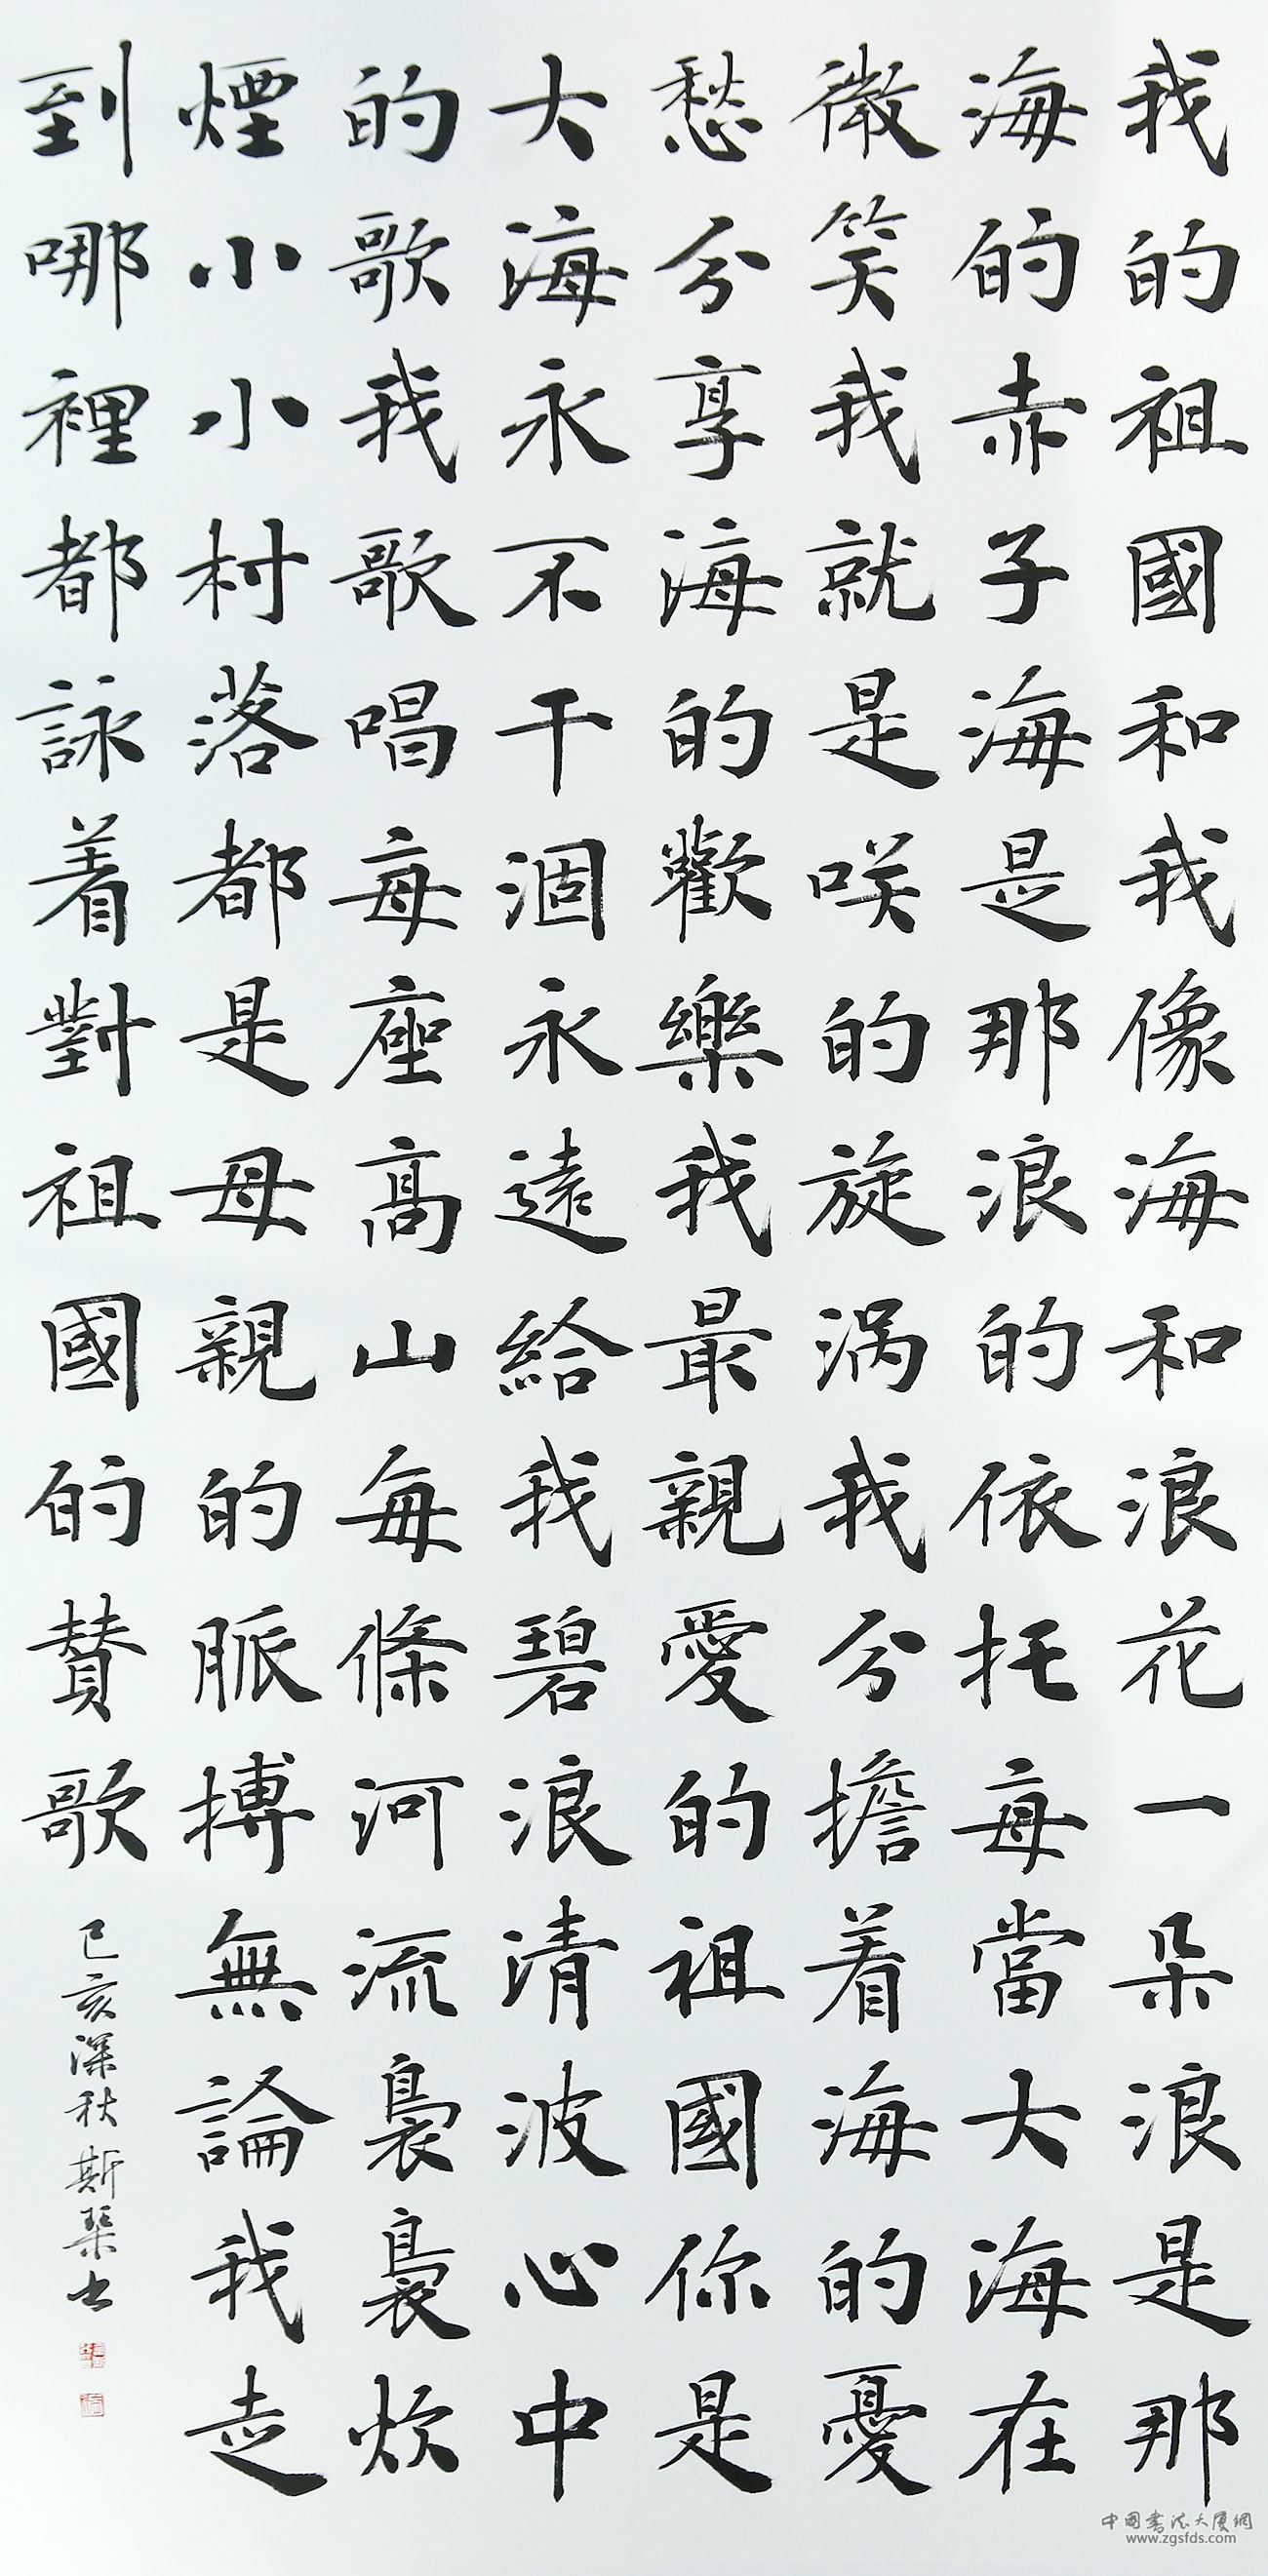 我的祖國和我像海和浪花一朵浪是那
海的赤子海是那浪的依托每當大海在
微笑我就是咲的旋涡我分擔着海的憂
愁分享海的歡樂我最親愛的祖國你是
大海永不干涸永遠給我碧浪清波心中
的歌我歌唱每座高山每條河流裊裊炊
煙小小村落都是母親的脈搏無論我走
到哪裡都詠着對祖國的贊歌
己亥深秋斯琹书
中国书法大厦網
www.zgsfds.com